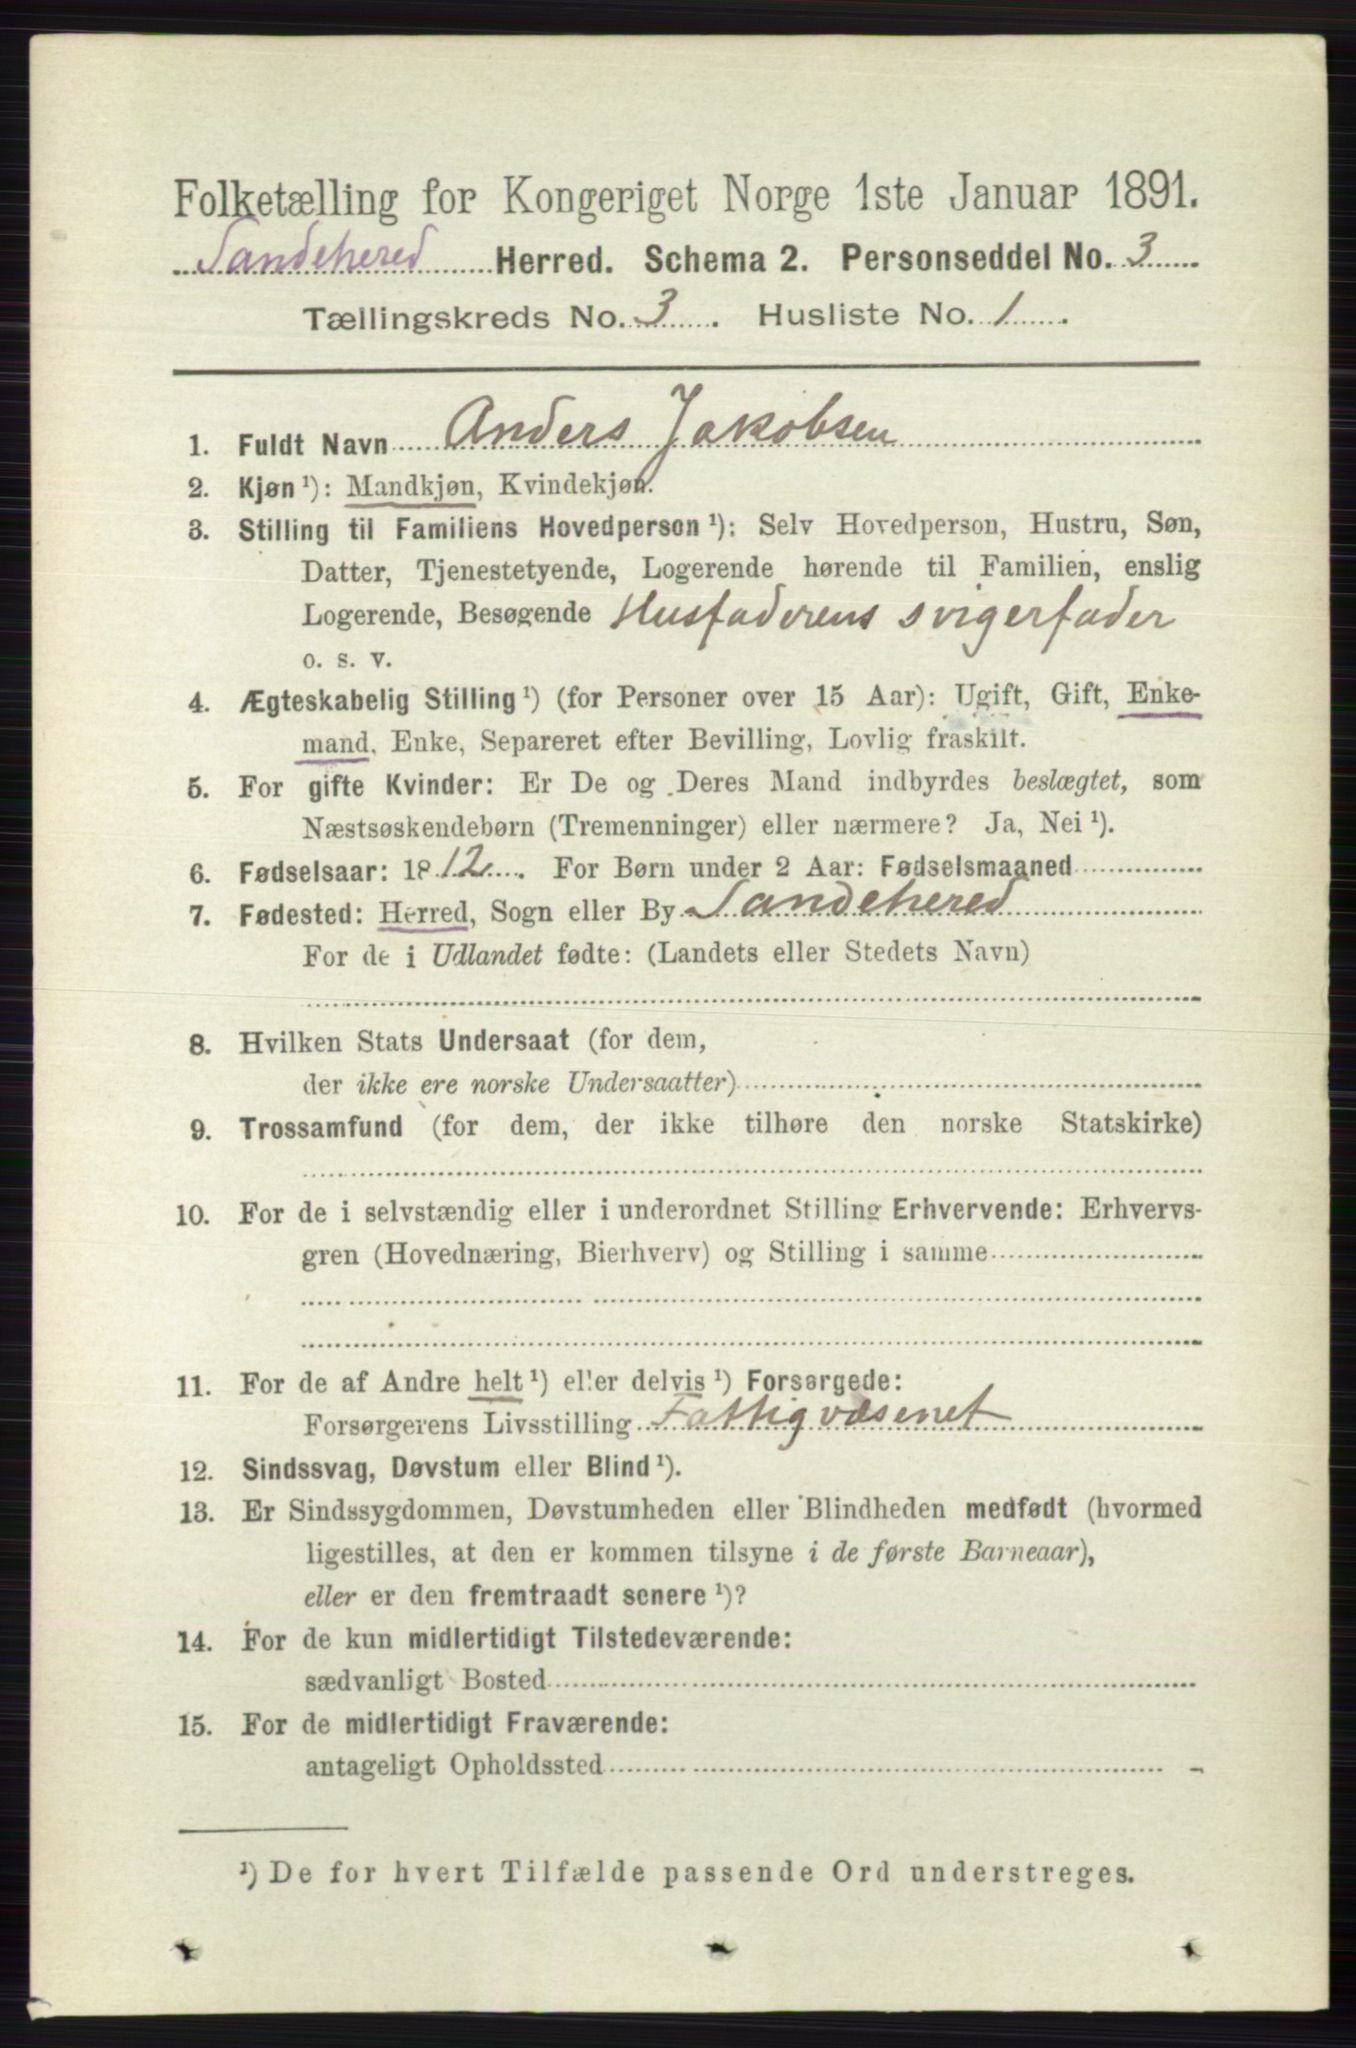 Folketælling for Kongeriget Norge 1ste Januar 1891.
Sandehered Herred. Schema 2. Personseddel No. 3
Tællingskreds No. 3. Husliste No. 1.
1. Fuldt Navn Anders Jakobsen
2. Kjøn ¹): Mandkjøn, Kvindekjøn.
3. Stilling til Familiens Hovedperson ¹): Selv Hovedperson, Hustru, Søn,
Datter, Tjenestetyende, Logerende hørende til Familien, enslig
Logerende, Besøgende Husfaderens svigerfader
o. s. v.
4. Ægteskabelig Stilling ¹) (for Personer over 15 Aar): Ugift, Gift, Enke-
mand, Enke, Separeret efter Bevilling, Lovlig fraskilt.
5. For gifte Kvinder: Er De og Deres Mand indbyrdes beslægtet, som
Næstsøskendebørn (Tremenninger) eller nærmere? Ja, Nei ¹).
6. Fødselsaar: 1812. For Børn under 2 Aar: Fødselsmaaned
7. Fødested: Herred, Sogn eller By Sandehered
For de i Udlandet fødte: (Landets eller Stedets Navn)
8. Hvilken Stats Undersaat (for dem,
der ikke ere norske Undersaatter)
9. Trossamfund (for dem, der ikke tilhøre den norske Statskirke)
10. For de i selvstændig eller i underordnet Stilling Erhvervende: Erhvervs-
gren (Hovednæring, Bierhverv) og Stilling i samme
11. For de af Andre helt ¹) eller delvis ¹) Forsørgede:
Forsørgerens Livsstilling Fattigvæsenet
12. Sindssvag, Døvstum eller Blind ¹).
13. Er Sindssygdommen, Døvstumheden eller Blindheden medfødt (hvormed
ligestilles, at den er kommen tilsyne i de første Barneaar),
eller er den fremtraadt senere ¹)?
14. For de kun midlertidigt Tilstedeværende:
sædvanligt Bosted
15. For de midlertidigt Fraværende:
antageligt Opholdssted
¹) De for hvert Tilfælde passende Ord understreges.